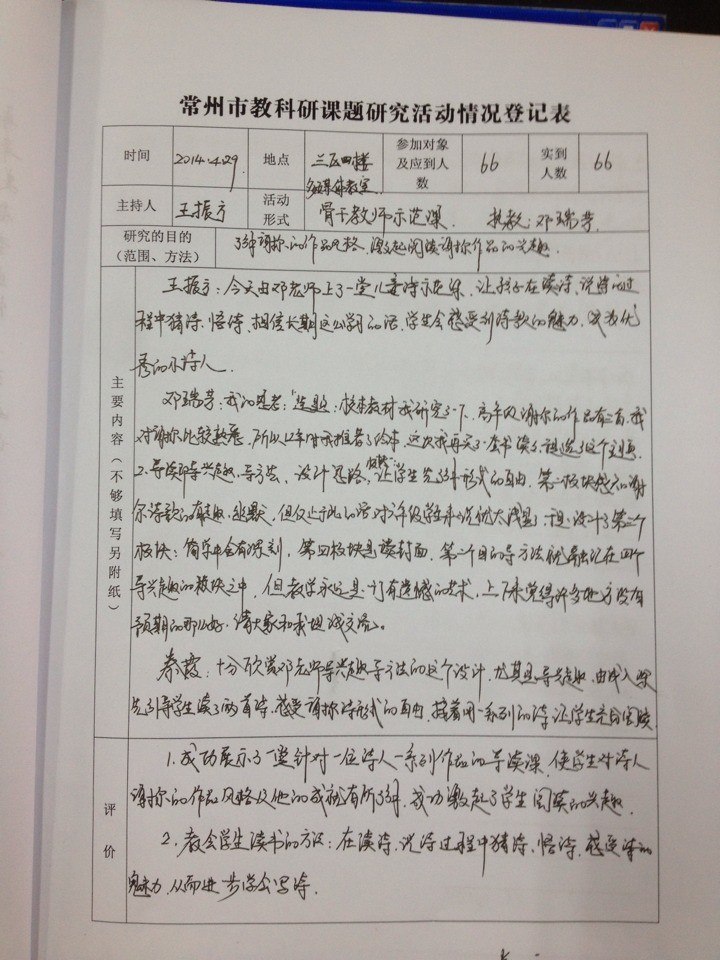 常州市教科研课题研究活动情况登记表
时间 2014.4.29 地点 三五四楼多媒体教室 参加对象及应到人数 66 实到人数 66
主持人 王振方 活动形式 骨干教师示范课. 执教:邓瑞芳
研究的目的(范围、方法) 了解谢尔的作品风格,激起阅读谢尔作品的兴趣
主要内容(不够填写另附纸)
王振方:今天由邓老师上了一堂儿童诗示范课,让孩子在读诗、说诗的过
程中猜诗、悟诗,相信长期这么学习的话,学生会感受到诗歌的魅力,成为优
秀的小诗人.
邓瑞芳:我的思考:1.选题:校本教材我研究了一下,高年级谢尔的作品有三首,我
对谢尔比较熟悉,这次我再买了一套书读了,
2.导读即导兴趣、导方法,设计思路,让学生先了解形式的自由,第二板块感知谢
尔诗歌的有趣、幽默,但仅止于此的话对六年级学生来说犹太浅显,于是设计了第三个
板块:简单中会有深刻,第四板块是读封面,第二个目的导方法就融汇在四个
导兴趣的板块之中,但教学永远是一门有遗憾的艺术,上下来觉得许多地方没有
预期的那么好,请大家和我坦诚交流。
秦霞:十分欣赏邓老师导兴趣导方法的这个设计,尤其是导兴趣,由浅入深
先引导学生读了两首诗,感受谢尔诗形式的自由,接着用一系列的诗让学生充分阅读
评价
1.成功展示了一堂针对一位诗人一系列作品的导读课,使学生对诗人
谢尔的作品风格及他的成就有所了解,成功激起了学生阅读的兴趣.
2.教会学生读书的方法:在读诗、说诗过程中猜诗、悟诗,感受诗的
魅力,从而进一步学会写诗.